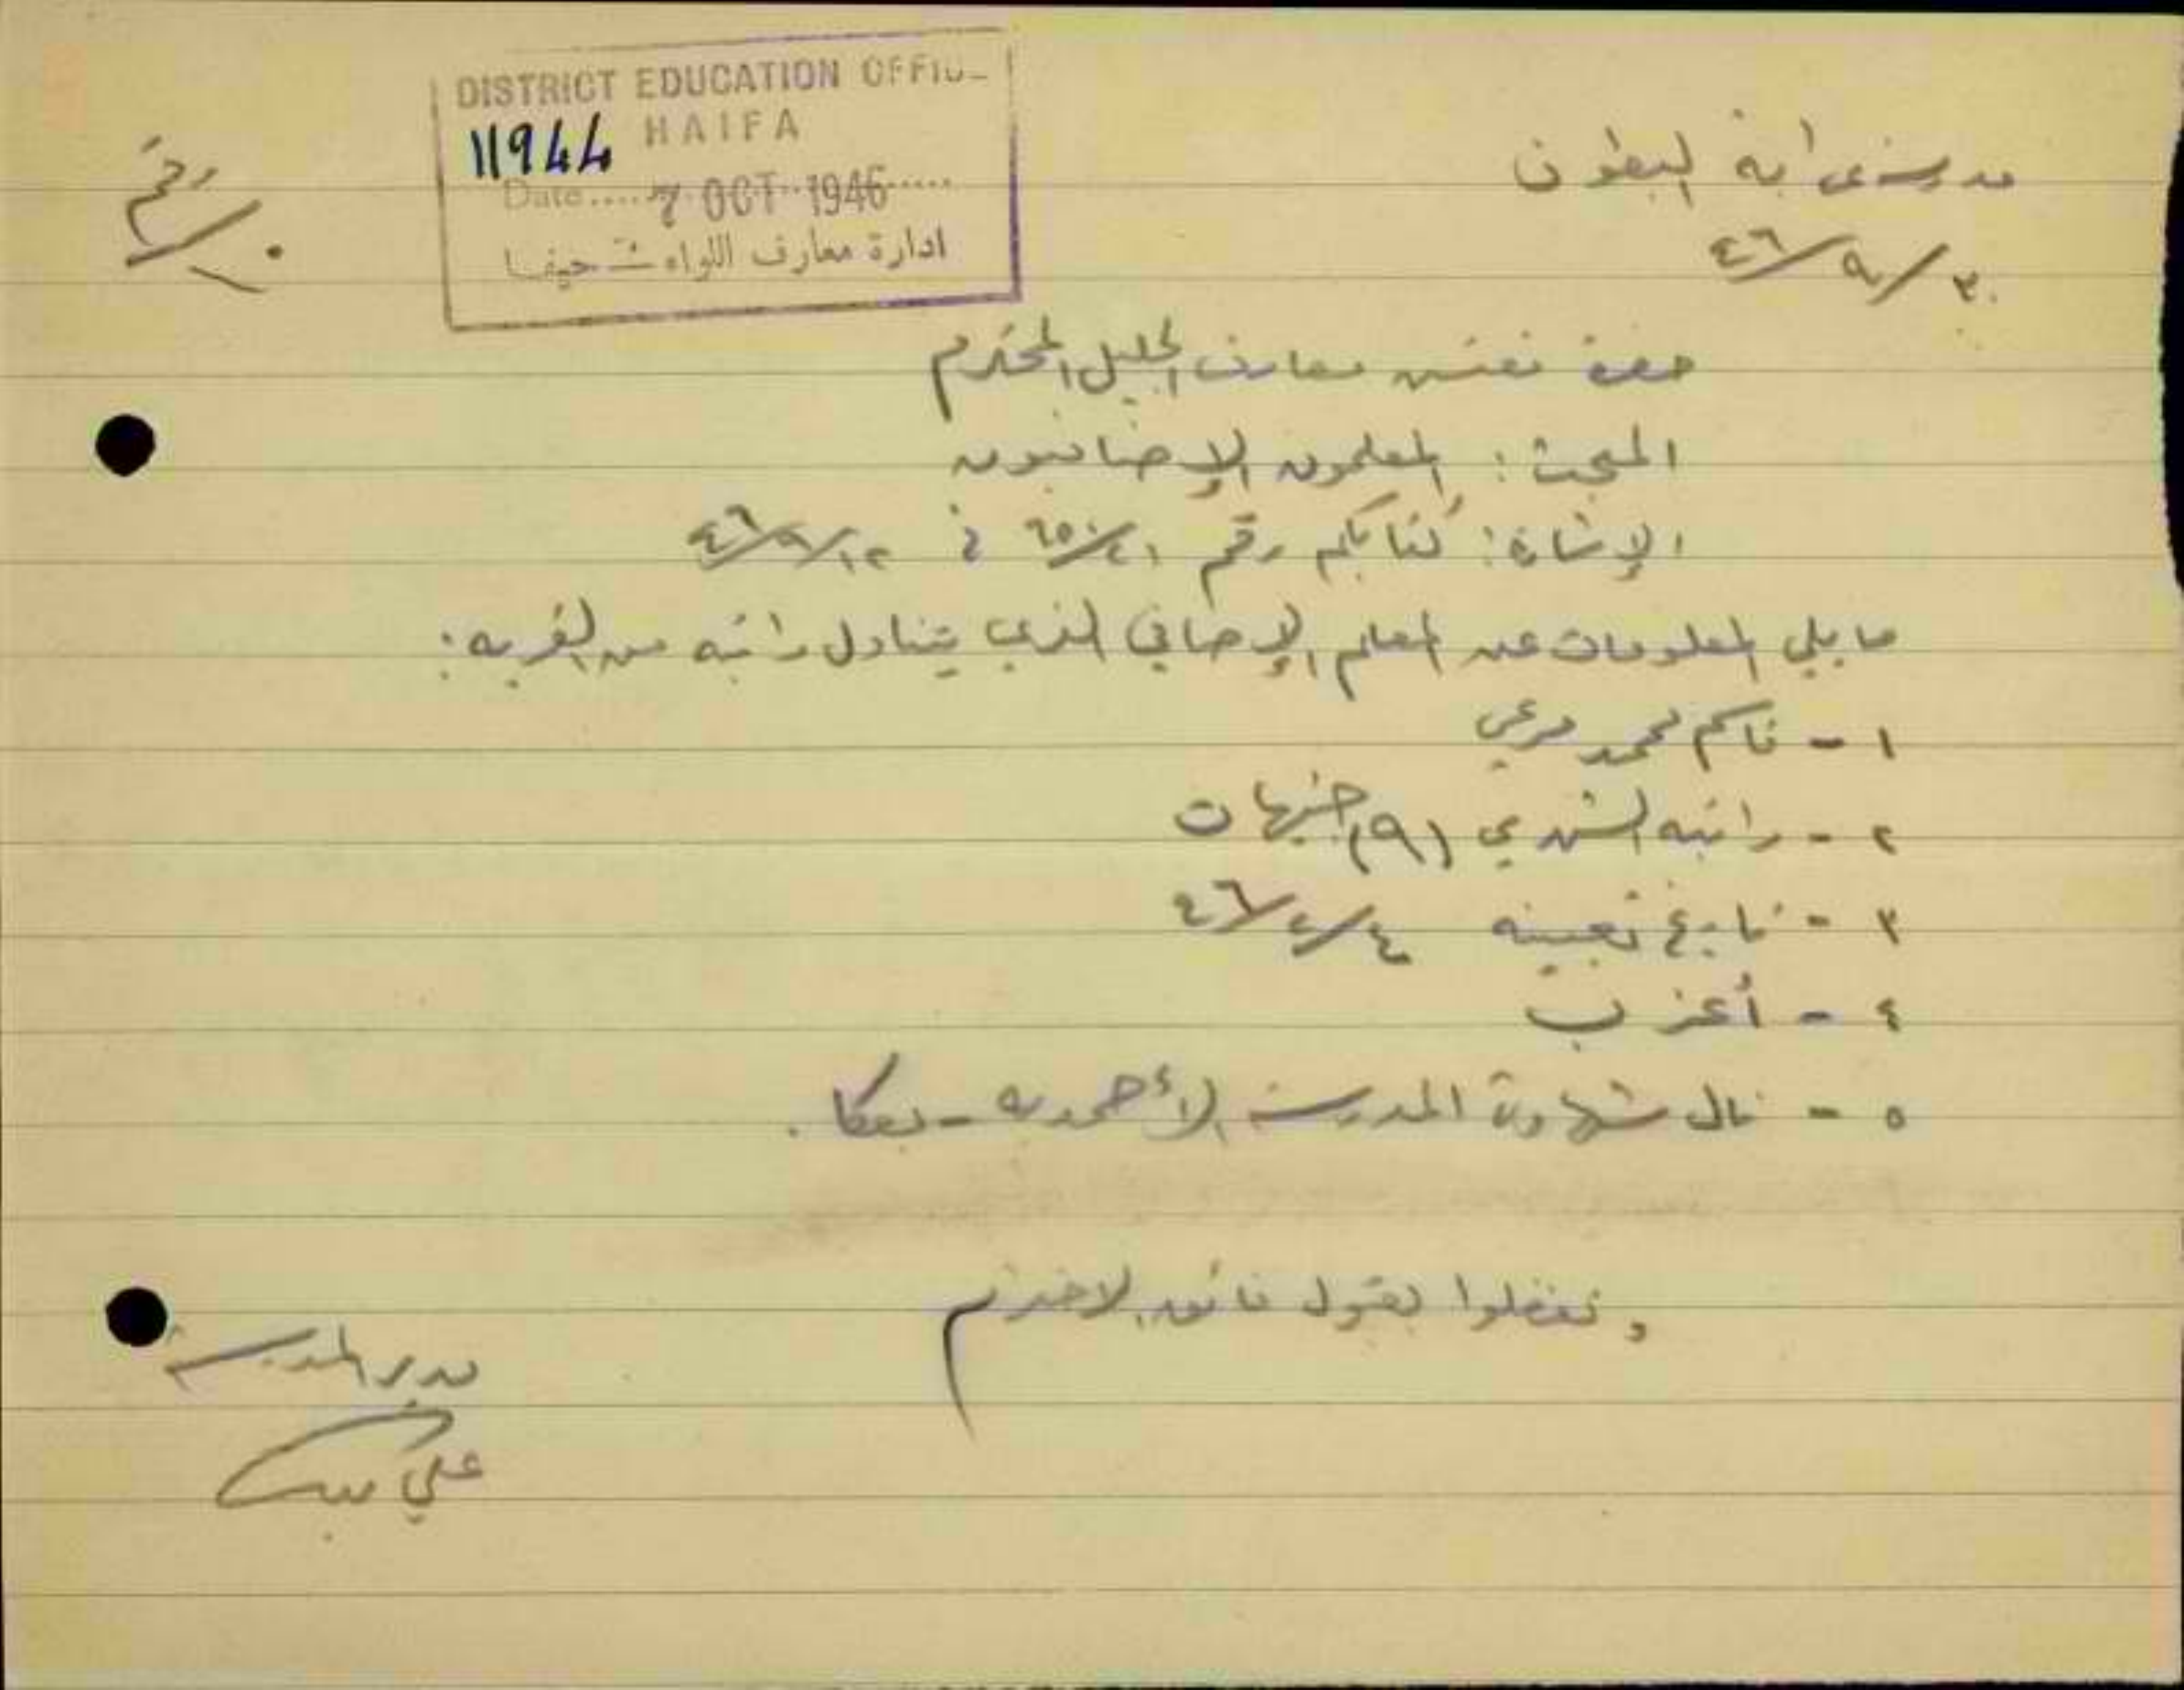 DISTRICT EDUCATION OFFIC
HAIFA
11944
Date..... 7 OCT 1946.....
ادارة معارف اللواء - حيفا
مدرسة عرابة البطوف
٣٠/٩/٤٦
حضرة مفتش معارف الجليل المحترم
المبحث: المعلمون الإضافيون
الإشارة: كتابكم رقم ٦٥/٤١ في ١٢/٩/٤٦
ما يلي المعلومات عن المعلم الإضافي الذي يتناول راتبه من القرية:
١ - قاسم محمد مرعي
٢ - راتبه الشهري (٩) جنيهات
٣ - تاريخ تعيينه ٤٦
٤ - أعزب
٥ - نال شهادة المدرسة الأحمدية - بعكا.
وتفضلوا بقبول فائق الاحترام
مدير المدرسة
علي